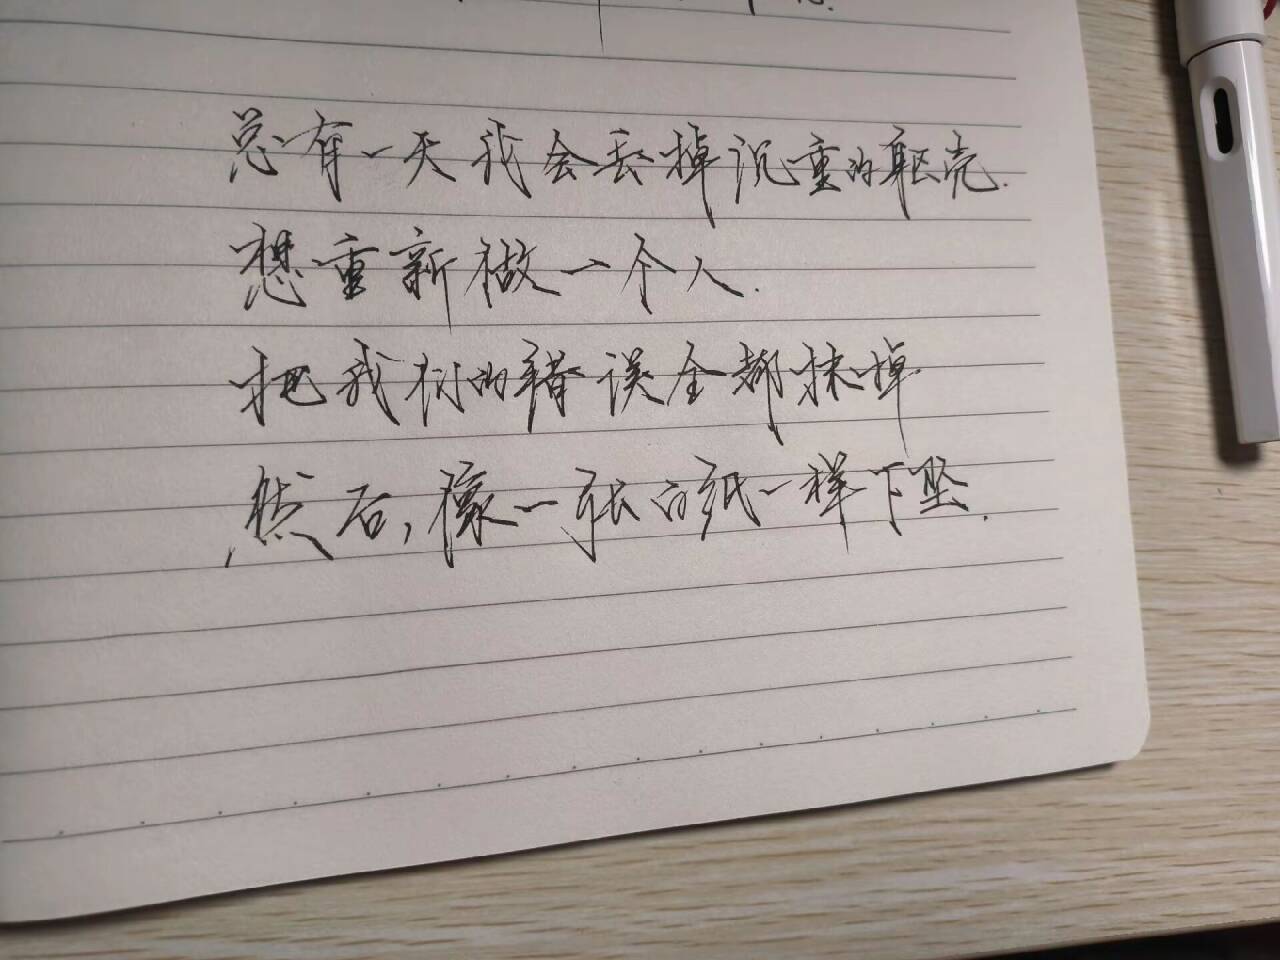 总有一天我会丢掉沉重的躯壳.
想重新做一个人.
把我们的错误全都抹掉.
然后,像一张白纸一样下坠.